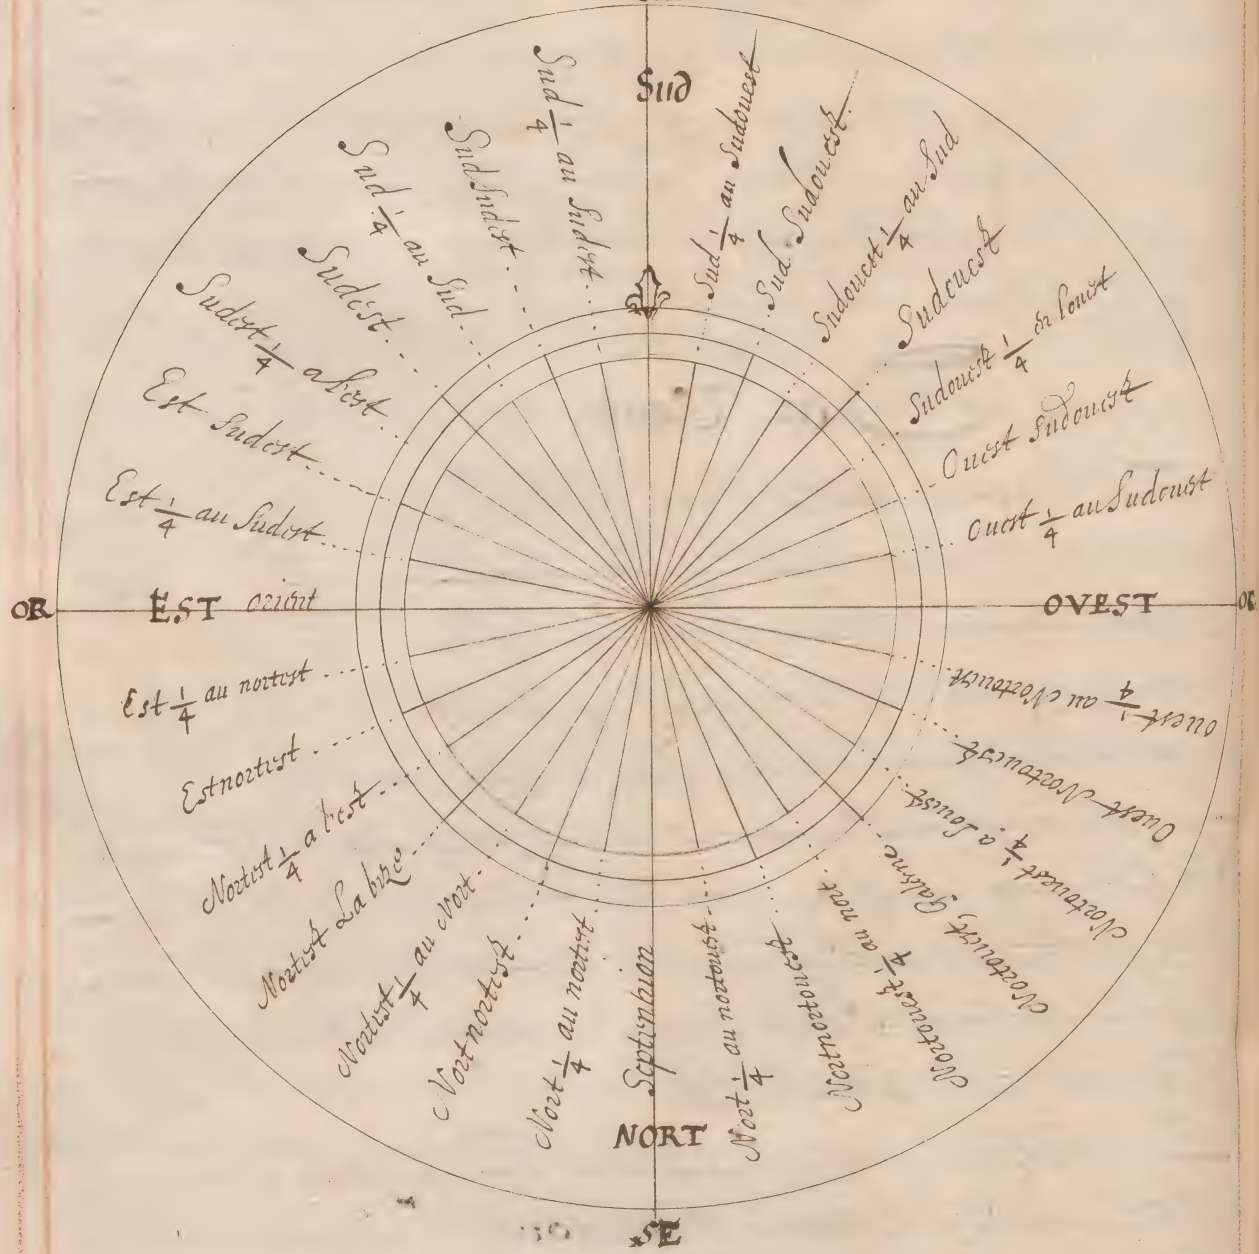 Sud
Sud 1/4 au Sudouest
Sud Sudouest.
Sudouest 1/4 au Sud
Sudouest
Sudouest 1/4 en louest
Ouest Sudouest
Ouest 1/4 au Sudouest
OVEST
Ouest 1/4 au Nortouest
Ouest Nortouest
Nortouest 1/4 a Louest
Nortouest, Galerne
Nortouest 1/4 au nort
Nortnortouest
Nort 1/4 au nortouest
NORT
Septenhion
SE
Nort 1/4 au nortest
Nort nortest
Nortest 1/4 au Nort
Nortest La bize
Nortest 1/4 a l'est
Estnortest
Est 1/4 au nortest
OR
EST orient
Est 1/4 au Sudest
Est Sudest
Sudest 1/4 a l'est
Sudest
Sud 1/4 au Sud
SudSudest
Sud 1/4 au Sudest